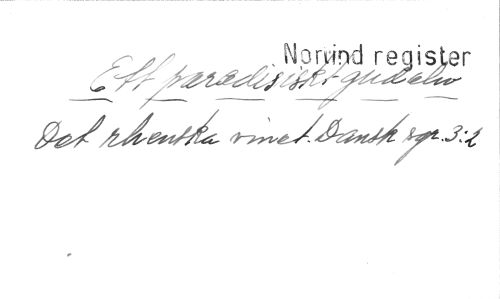 Norlind register
Ett paradisiskt gudaliv
Det rhenska vinet. Dansk sgr. 3:2